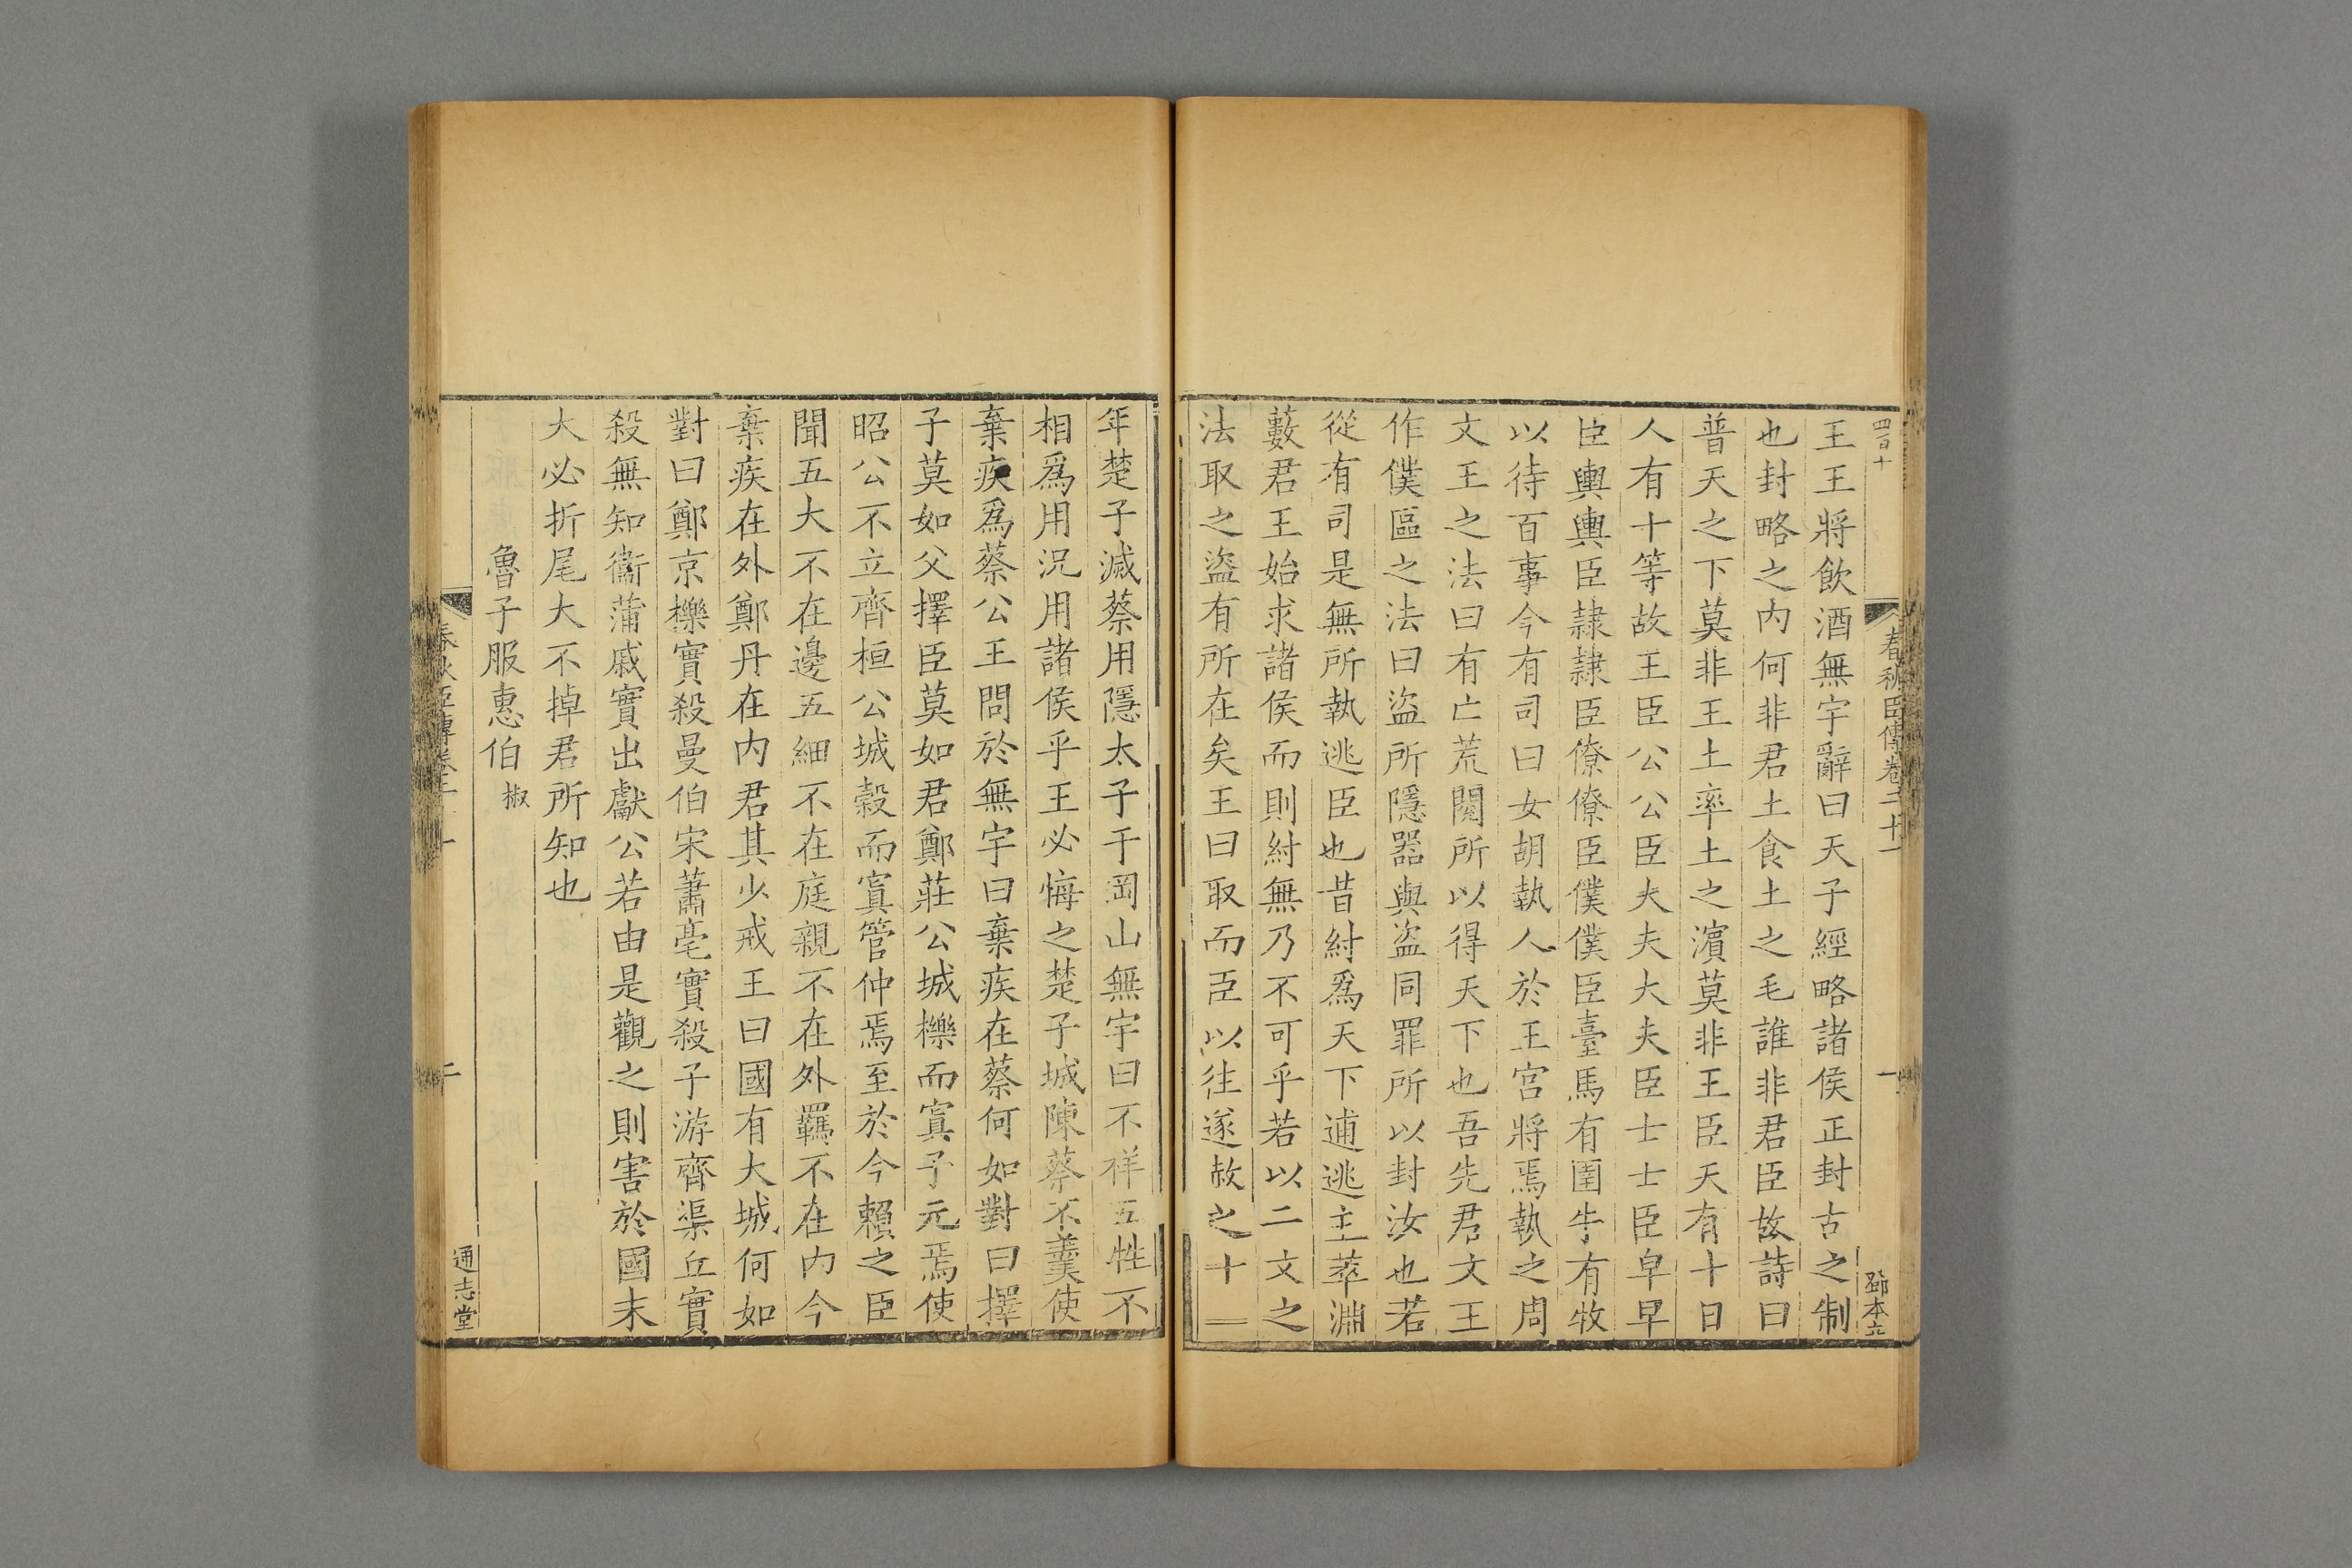 四百十
春秋臣傳卷二十一
一
鄧本立
王王將飲酒無宇辭曰天子經略諸侯正封古之制
也封略之内何非君土食土之毛誰非君臣故詩曰
普天之下莫非王土率土之濱莫非王臣天有十日
人有十等故王臣公公臣大夫大夫臣士士臣皁皁
臣輿輿臣隷隷臣僚僚臣僕僕臣臺馬有圉牛有牧
以待百事今有司曰女胡執人於王宮將焉執之周
文王之法曰有亡荒閱所以得天下也吾先君文王
作僕區之法曰盜所隱器與盜同罪所以封汝也若
從有司是無所執逃臣也昔紂爲天下逋逃主萃淵
藪君王始求諸侯而則紂無乃不可乎若以二文之
法取之盜有所在矣王曰取而臣以往遂赦之十一
年楚子滅蔡用隱太子于岡山無宇曰不祥五牲不
相爲用況用諸侯乎王必悔之楚子城陳蔡不羹使
棄疾爲蔡公王問於無宇曰棄疾在蔡何如對曰擇
子莫如父擇臣莫如君鄭莊公城櫟而寘子元焉使
昭公不立齊桓公城穀而寘管仲焉至於今賴之臣
聞五大不在邊五細不在庭親不在外羈不在内今
棄疾在外鄭丹在内君其少戒王曰國有大城何如
對曰鄭京櫟實殺曼伯宋蕭亳實殺子游齊渠丘實
殺無知衞蒲戚實出獻公若由是觀之則害於國末
大必折尾大不掉君所知也
魯子服惠伯椒
二
通志堂